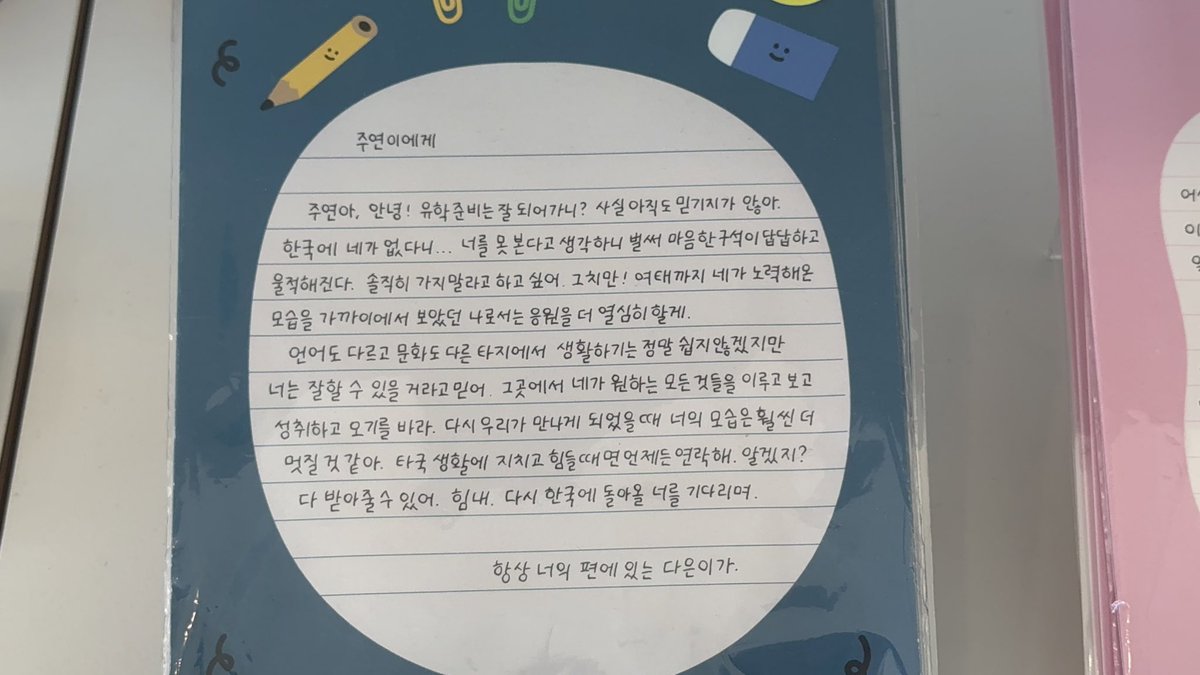 주연이에게
주연아, 안녕! 유학 준비는 잘 되어가니? 사실 아직도 믿기지가 않아.
한국에 네가 없다니... 너를 못 본다고 생각하니 벌써 마음 한 구석이 답답하고
울적해진다. 솔직히 가지말라고 하고 싶어. 그치만! 여태까지 네가 노력해온
모습을 가까이에서 보았던 나로서는 응원을 더 열심히 할게.
언어도 다르고 문화도 다른 타지에서 생활하기는 정말 쉽지 않겠지만
너는 잘할 수 있을 거라고 믿어. 그곳에서 네가 원하는 모든 것들을 이루고 보고
성취하고 오기를 바라. 다시 우리가 만나게 되었을 때 너의 모습은 훨씬 더
멋질 것 같아. 타국 생활에 지치고 힘들 때면 언제든 연락해. 알겠지?
다 받아줄 수 있어. 힘내. 다시 한국에 돌아올 너를 기다리며.
항상 너의 편에 있는 다은이가.